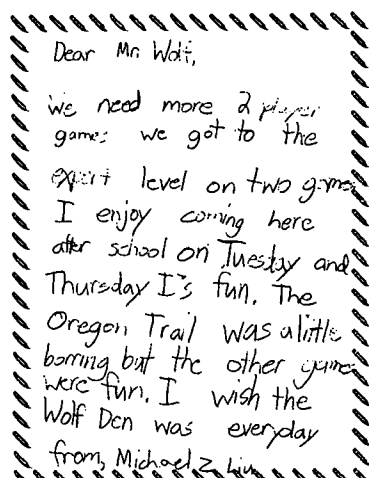 Dear Mr. Wolf,
We need more 2 player
games we got to the
expert level on two games
I enjoy coming here
after school on Tuesday and
Thursday I's fun. The
Oregon Trail was a little
borring but the other games
were fun. I wish the
Wolf Den was everyday
from, Michael Z. Liu